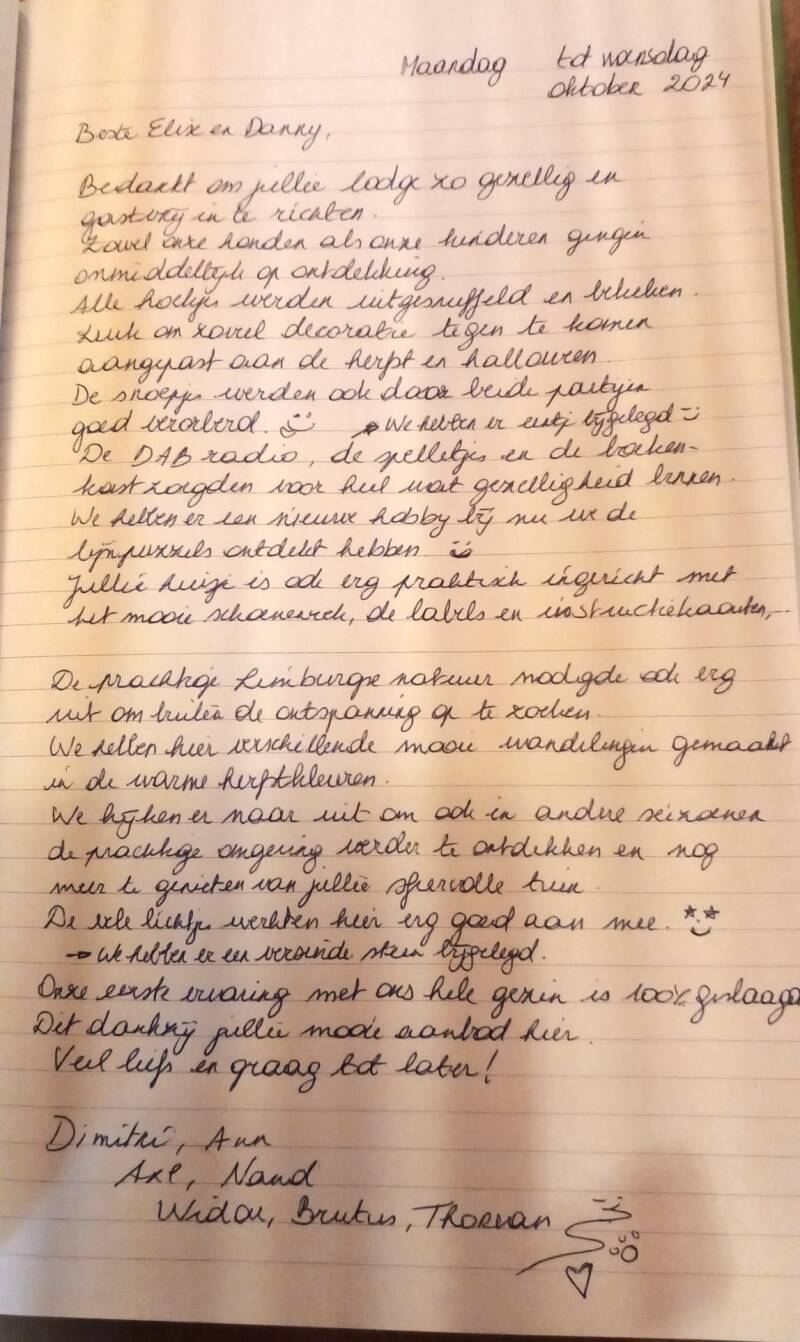 Maandag tot woensdag
oktober 2024
Beste Elix en Danny,
Bedankt om jullie lodge zo gezellig en
gastvrij in te richten.
Zowel onze honden als onze kinderen gingen
onmiddellijk op ontdekking.
Alle hoekjes werden uitgesnuffeld en bekeken.
Leuk om zoveel decoratie tegen te komen
aangepast aan de herfst en halloween.
De snoepjes werden ook door beide partijen
goed verorberd. → We hebben er eentje bijgelegd
De DAB radio, de spelletjes en de boeken-
kast zorgden voor heel wat gezelligheid binnen.
We hebben er een nieuwe hobby bij nu we de
lijnpuzzels ontdekt hebben
Jullie huisje is ook erg praktisch ingericht met
het mooie schoenenrek, de labels en instructiekaarten,...
De prachtige Limburgse natuur nodigde ook erg
uit om buiten de ontspanning op te zoeken.
We hebben hier verschillende mooie wandelingen gemaakt
in de warme herfstkleuren.
We kijken er naar uit om ook in andere seizoenen
de prachtige omgeving verder te ontdekken en nog
meer te genieten van jullie sfeervolle tuin.
De vele lichtjes werkten hier erg goed aan mee.
→ We hebben er een versierde steen bijgelegd.
Onze eerste ervaring met ons hele gezin is 100% geslaagd
Dit dankzij jullie mooie aanbod hier.
Veel liefs en graag tot later!
Dimitri, Ann
Axl, Nand
Widou, Brutus, Thorvan